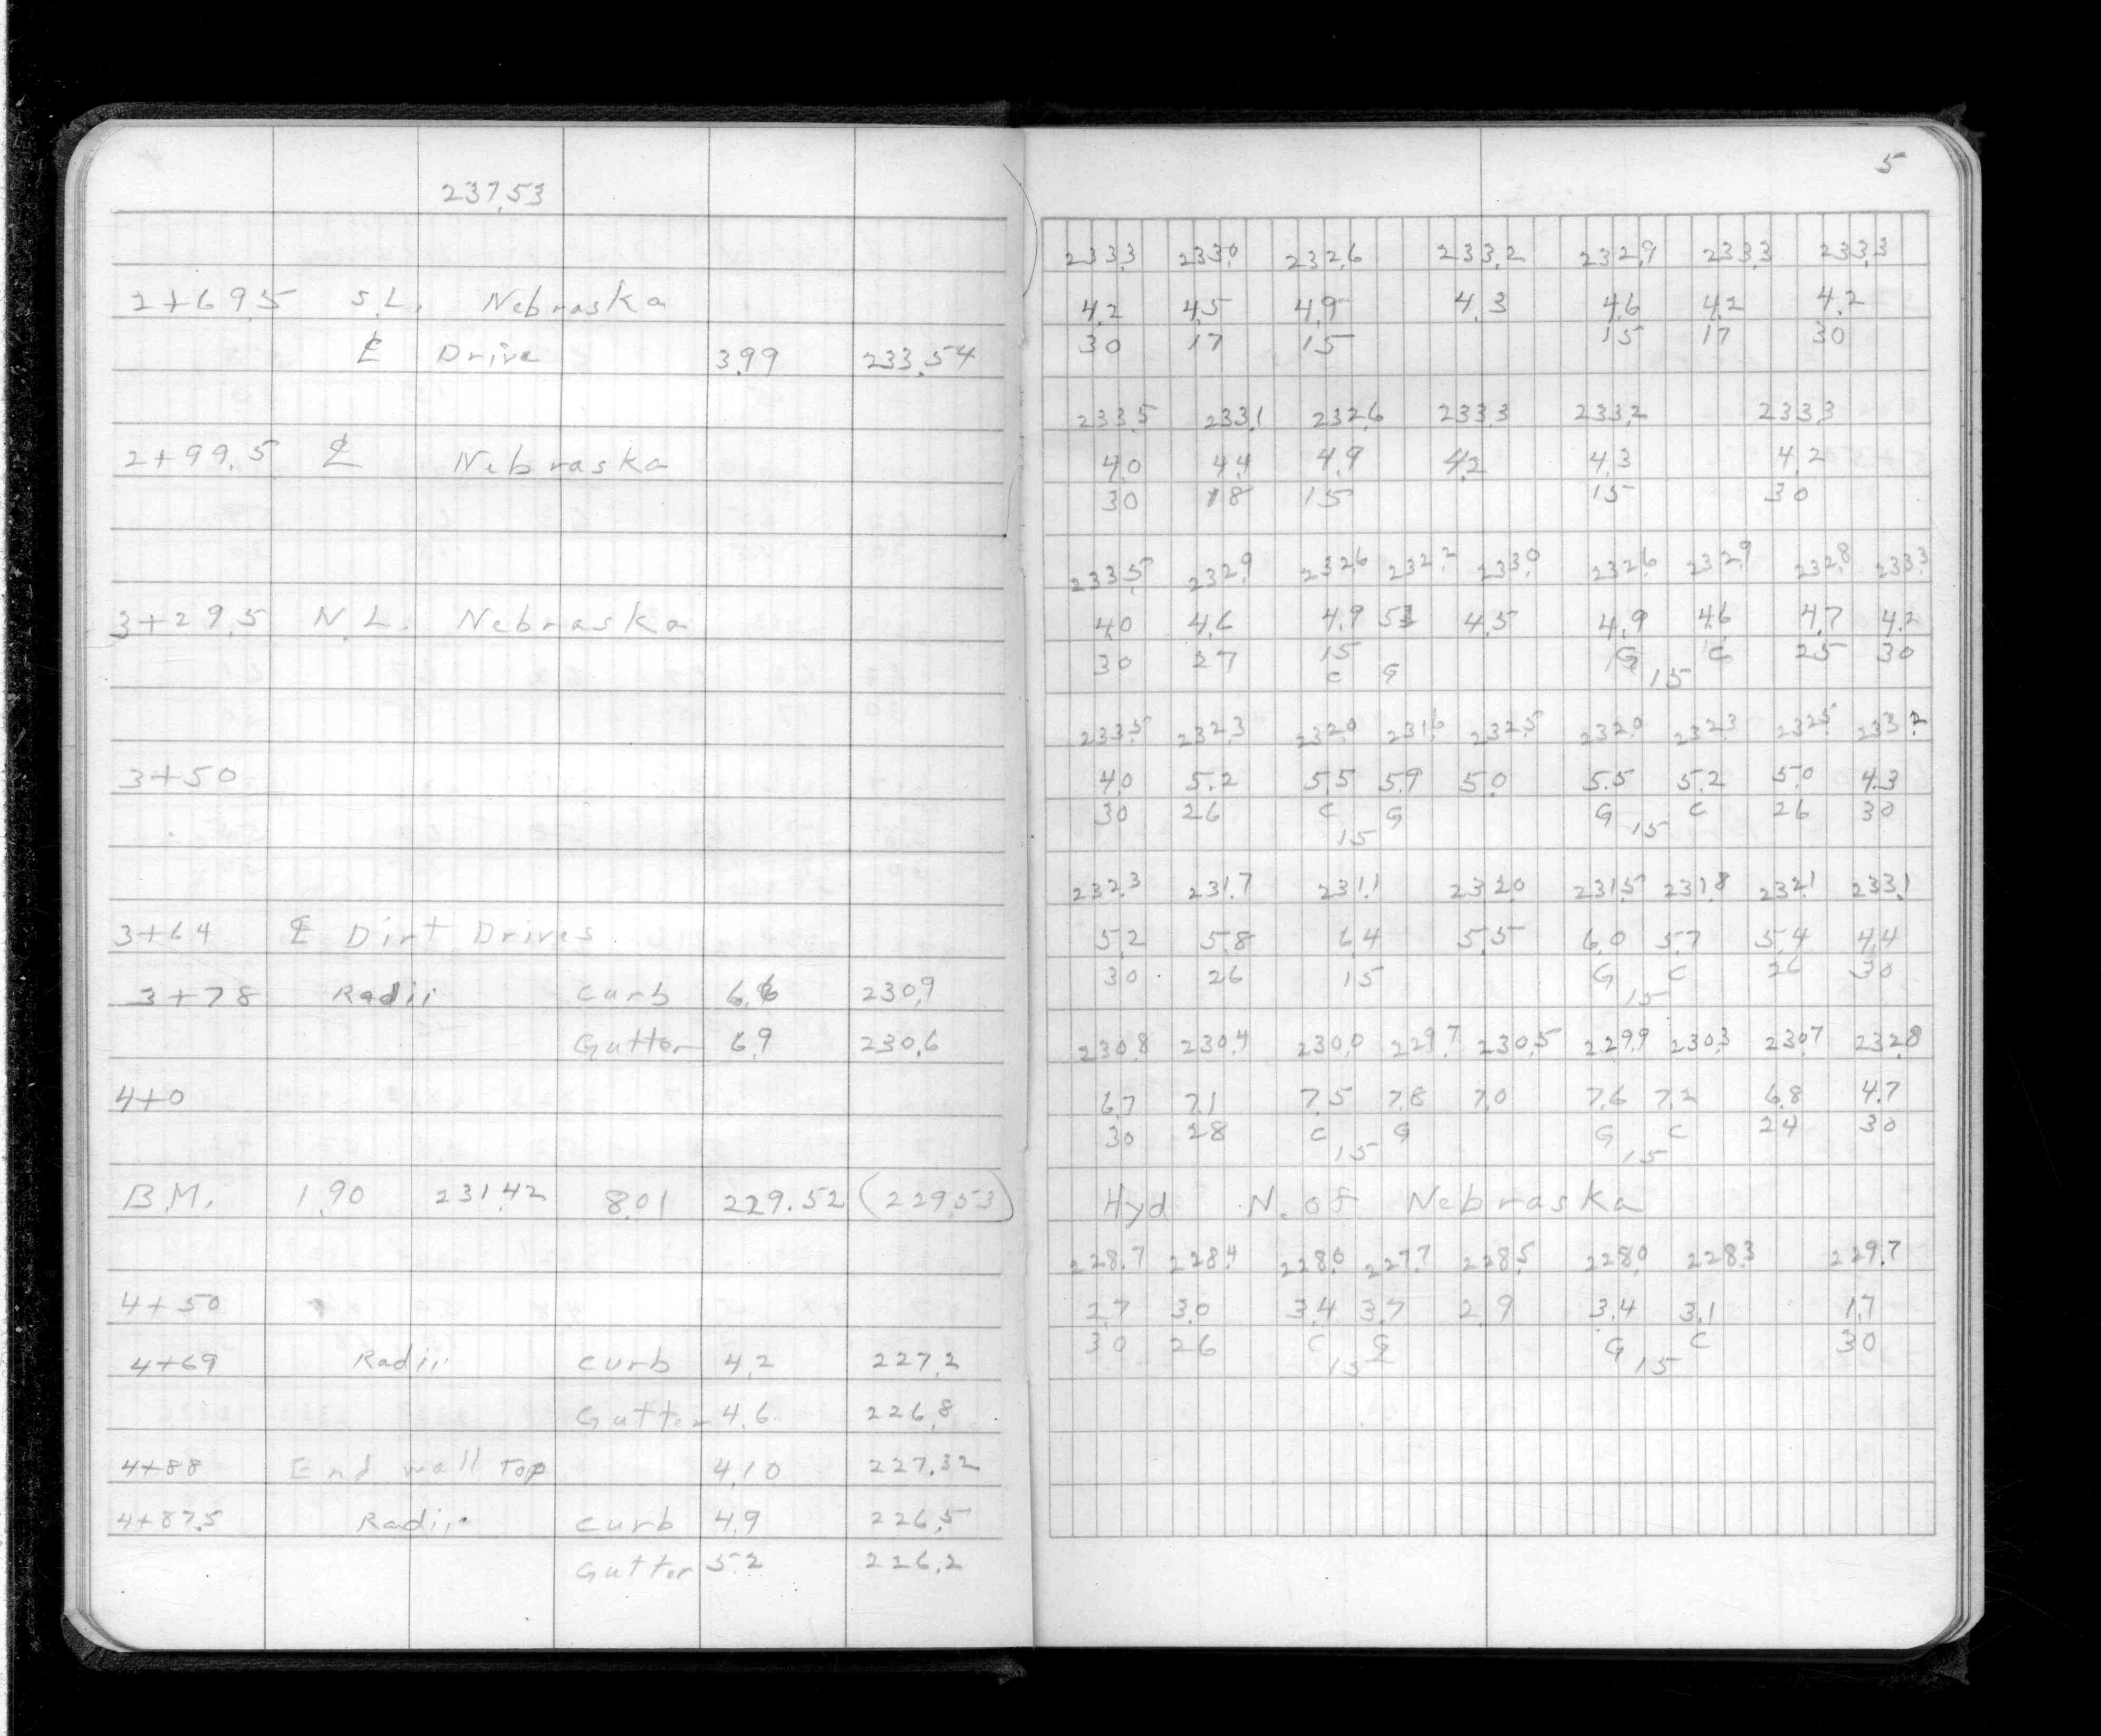 237.53
2+69.5 S.L. Nebraska
℄ Drive 3.99 233.54
2+99.5 ℄ Nebraska
3+29.5 N.L. Nebraska
3+50
3+64 ℄ Dirt Drives
3+78 Radii Curb 6.6 230.9
Gutter 6.9 230.6
4+0
B.M. 1.90 231.42 8.01 229.52 (229.53)
4+50
4+69 Radii Curb 4.2 227.2
Gutter 4.6 226.8
4+88 End wall Top 4.10 227.32
4+87.5 Radii Curb 4.9 226.5
Gutter 5.2 226.2
5
233.3 233.0 232.6 233.2 232.9 233.3 233.3
4.2 4.5 4.9 4.3 4.6 4.2 4.2
30 17 15 15 17 30
233.5 233.1 232.6 233.3 233.2 233.3
4.0 4.4 4.9 4.2 4.3 4.2
30 18 15 15 30
233.5 232.9 232.6 232.2 233.0 232.6 232.9 232.8 233.3
4.0 4.6 4.9 5.3 4.5 4.9 4.6 4.7 4.2
30 27 15 G C 25 30
C G 15
233.5 232.3 232.0 231.6 232.5 232.0 232.3 232.5 233.2
4.0 5.2 5.5 5.9 5.0 5.5 5.2 5.0 4.3
30 26 C G G C 26 30
15 15
232.3 231.7 231.1 232.0 231.5 231.8 232.1 233.1
5.2 5.8 6.4 5.5 6.0 5.7 5.4 4.4
30 26 15 G C 26 30
15
230.8 230.4 230.0 229.7 230.5 229.9 230.3 230.7 232.8
6.7 7.1 7.5 7.8 7.0 7.6 7.2 6.8 4.7
30 28 C G G C 24 30
15 15
Hyd N. of Nebraska
228.7 228.4 228.0 227.7 228.5 228.0 228.3 229.7
2.7 3.0 3.4 3.7 2.9 3.4 3.1 1.7
30 26 C G G C 30
15 15